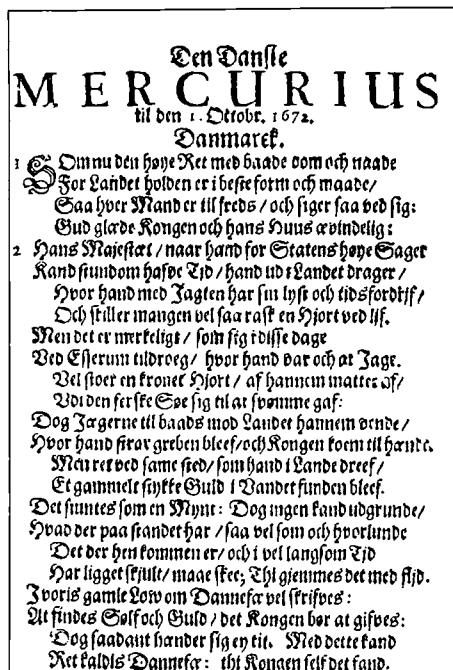 Den Danske
MERCURIUS
til den 1. Octobr. 1672.
Danmarck.
1 SOm nu den høye Ret med baade dom och naade
For Landet holden er i beste form och maade/
Saa hver Mand er til freds/ och siger saa ved sig:
Gud glæde Kongen och hans Huus ævindelig:
2 Hans Majestæt/ naar hand for Statens høye Sager
Kand stundom hafve Tid/ hand ud i Landet drager/
Hvor hand med Jagten har sin lyst och tidsfordrif/
Och stiller mangen vel saa rask en Hjort ved lif.
Men det er merkeligt/ som sig i disse dage
Ved Esserum tildroeg/ hvor hand var och at Jage.
Vel stoer en kronet Hjort/ af hannem mattet af/
Ud i den ferske Søe sig til at svømme gaf:
Dog Jægerne til baads mod Landet hannem vende/
Hvor hand strax greben bleef/ och Kongen koem til hænde.
Men ret ved same sted/ som hand i Lande dreef/
Et gammelt stykke Guld i Vandet funden bleef.
Det siuntes som en Mynt: Dog ingen kand udgrunde/
Hvad der paa standet har/ saa vel som och hvorlunde
Det der hen kommen er/ och i vel langsom Tid
Har ligget skjult/ maae skee; Thi gjemmes det med flid.
I voris gamle Low om Dannefæ vel skrifves:
At findes Sølf och Guld/ det Kongen bør at gifves:
Dog saadant hænder sig ey tit. Med dette kand
Ret kaldis Dannefæ: thi Kongen self det fand.